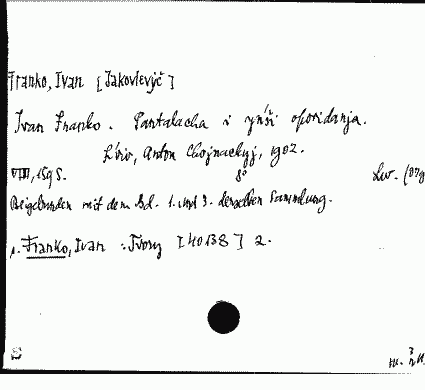 Franko, Ivan [Jakovlevyč]
Ivan Franko. Pantalacha i ynši opovidanja.
L'viv, Anton Chojnackyj, 1902.
VIII, 159 S. 8°
Beigebunden mit dem Bd. 1. und 3. derselben Sammlung.
1. Franko, Ivan : Tvory [40138] 2.